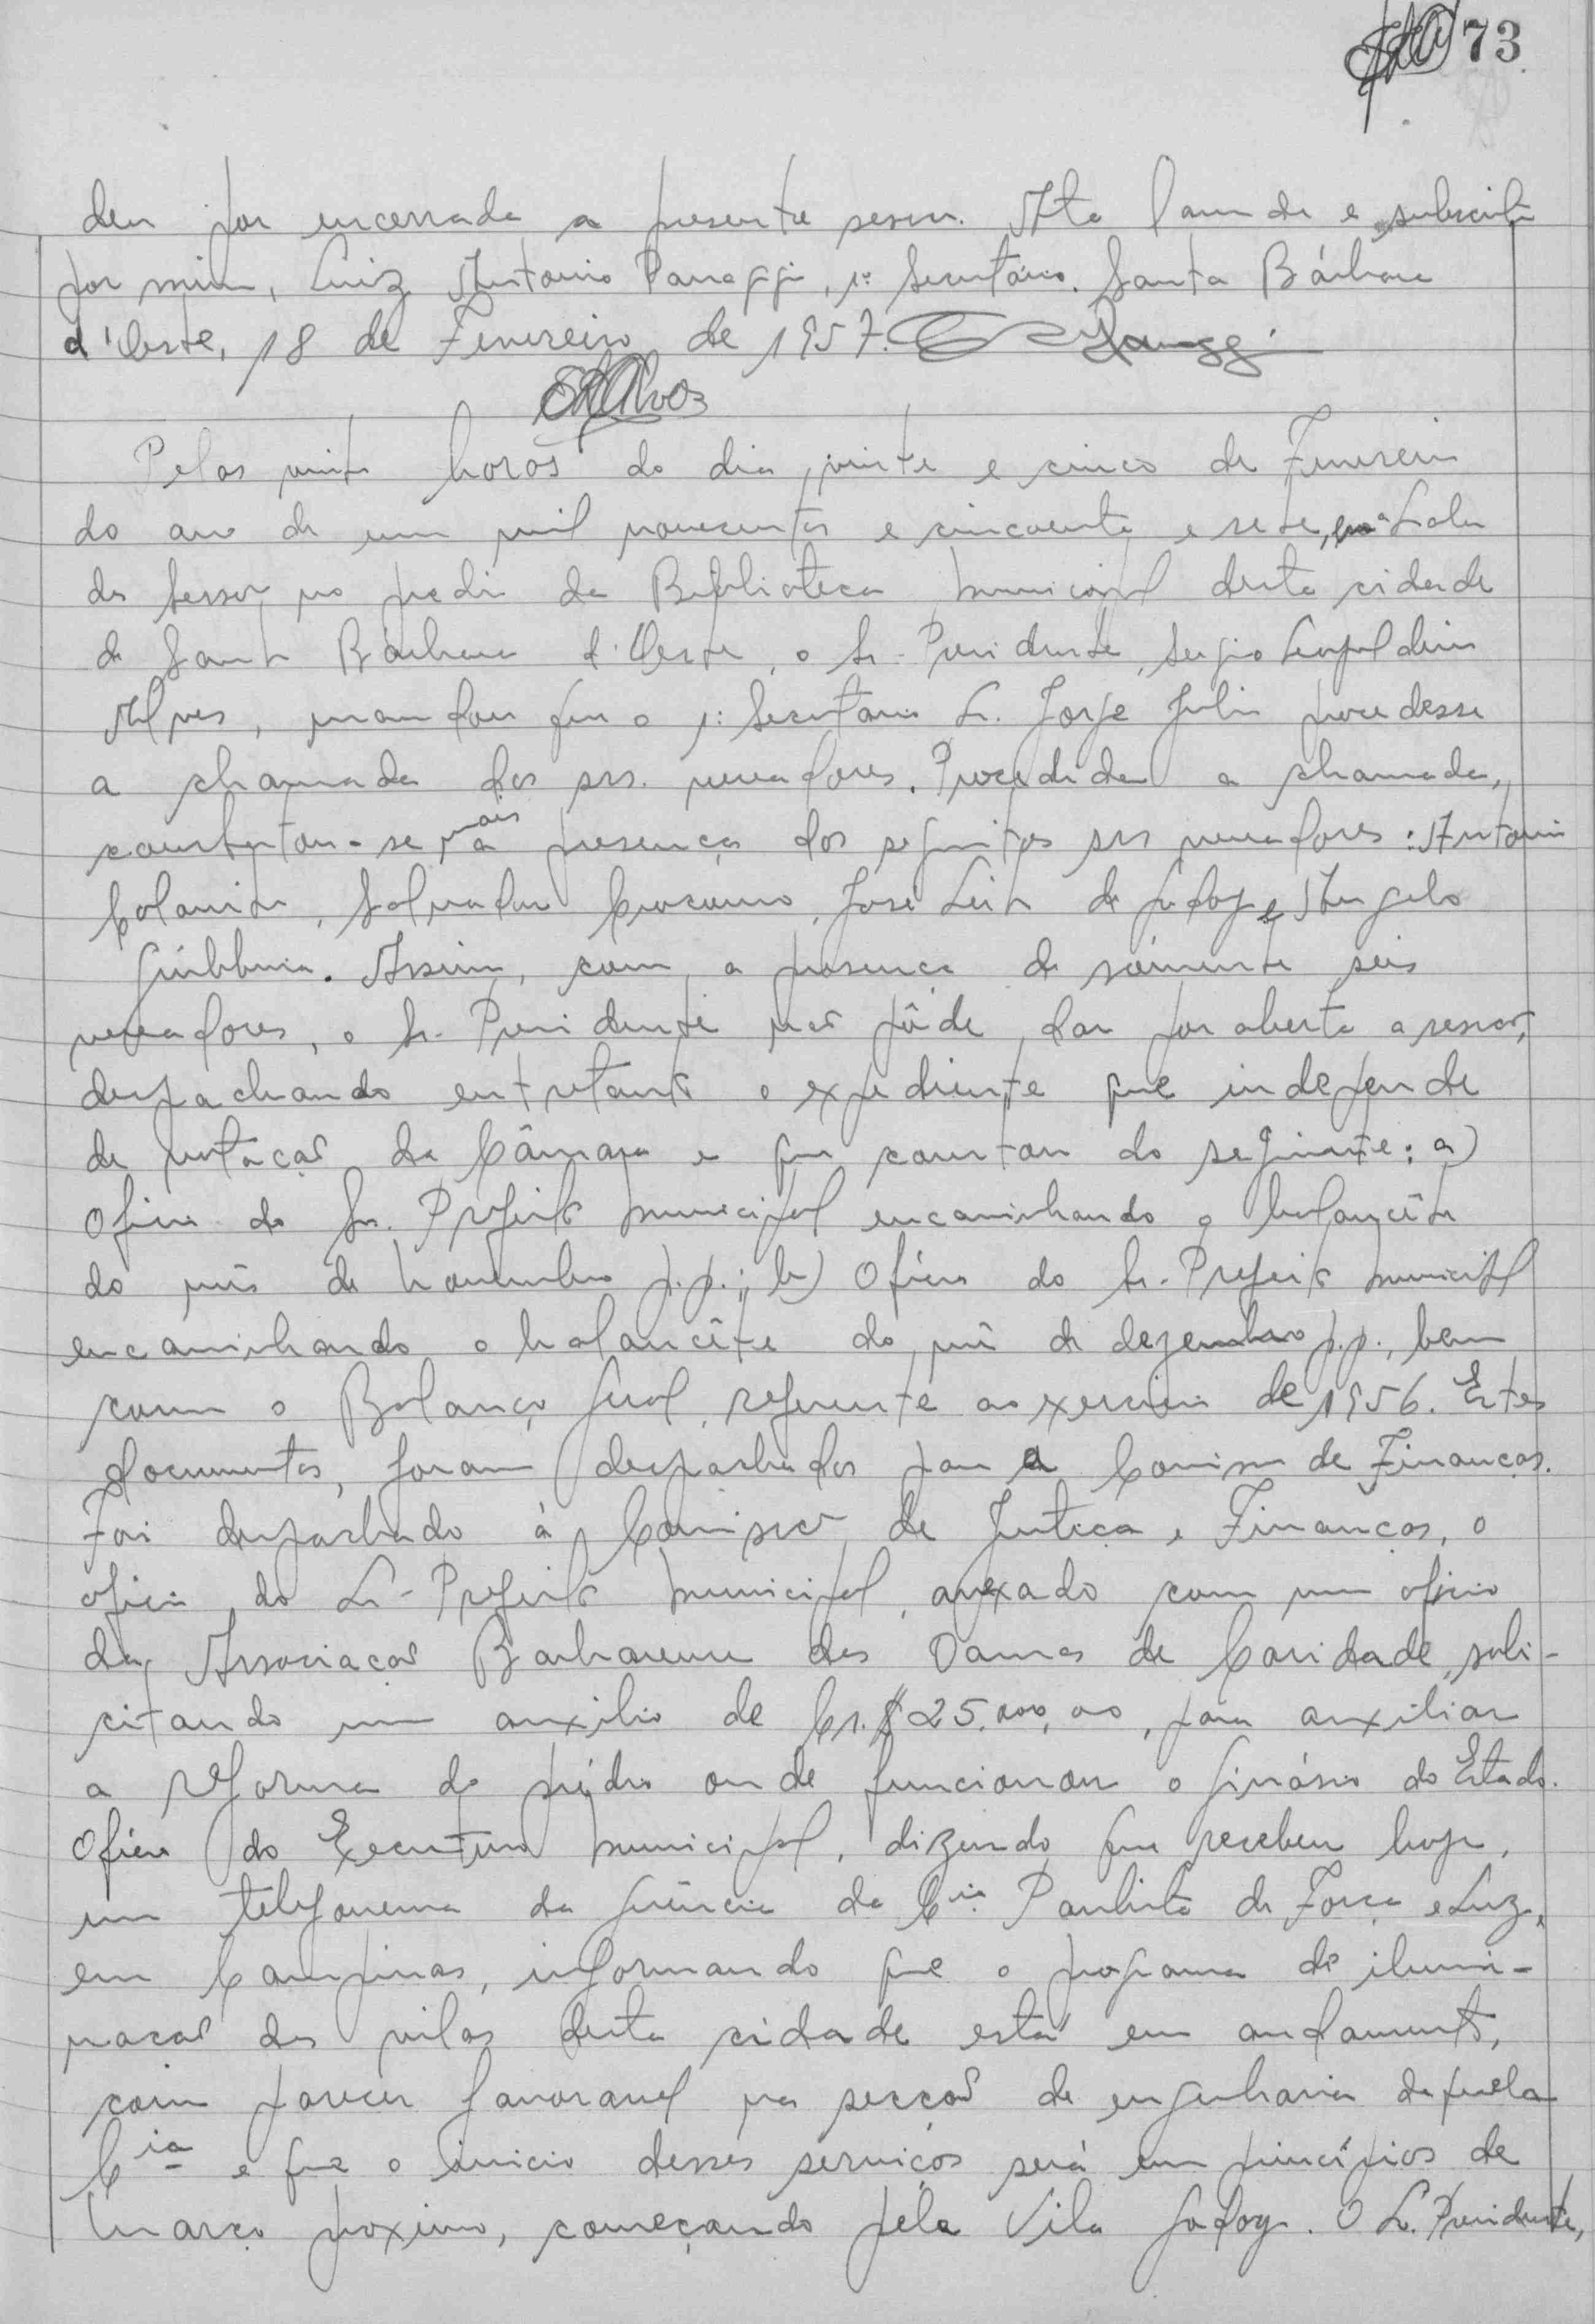 73
deu por encerrada a presente sessão. Ata lavrada e subscrita
por mim, Luiz Antonio Panaggi, 1º Secretário. Santa Bárbara
d'Oeste, 18 de Fevereiro de 1957.
Pelas vinte horas do dia, vinte e cinco de Fevereiro
do ano de um mil novecentos e cincoenta e sete, na Sala
das Sessões, no predio da Biblioteca Municipal desta cidade
de Santa Bárbara d'Oeste, o Sr. Presidente, Sergio Leopoldino
Alves, mandou que o 1º Secretario Sr. Jorge Julio procedesse
a chamada dos srs. vereadores. Procedida a chamada,
constatou-se mais a presença dos seguintes srs vereadores: Antonio
Colanito, Salvador Crucino, José Leite de Godoy e Angelo
Giubbina. Assim, com a presença de sòmente seis
vereadores, o Sr. Presidente não pôde dar por aberta a sessão,
despachando entretanto o expediente que independe
de votação da Câmara e que constou do seguinte: a)
Oficio do Sr. Prefeito Municipal encaminhando o balancête
do mês de Novembro p.p.; b) Oficio do Sr. Prefeito Municipal
encaminhando o balancête do mês de dezembro p.p., bem
como o Balanço Geral, referente ao exercicio de 1956. Estes
documentos, foram despachados para a Comissão de Finanças.
Foi despachado à Comissão de Justiça e Finanças, o
oficio do Sr. Prefeito Municipal, anexado com um oficio
da Associação Barbarense das Damas de Caridade, soli-
citando um auxilio de Cr.$ 25.000,00, para auxiliar
a reforma do prédio onde funcionou o Ginásio do Estado.
Oficio do Executivo Municipal, dizendo que recebeu hoje,
um telefonema da Gerência da Cia. Paulista de Força e Luz,
em Campinas, informando que o programa de ilumi-
nação das vilas desta cidade está em andamento,
com parecer favoravel na secção de engenharia daquela
Cia e que o inicio desses serviços será em princípios de
Março proximo, começando pela Vila Godoy. O Sr. Presidente,